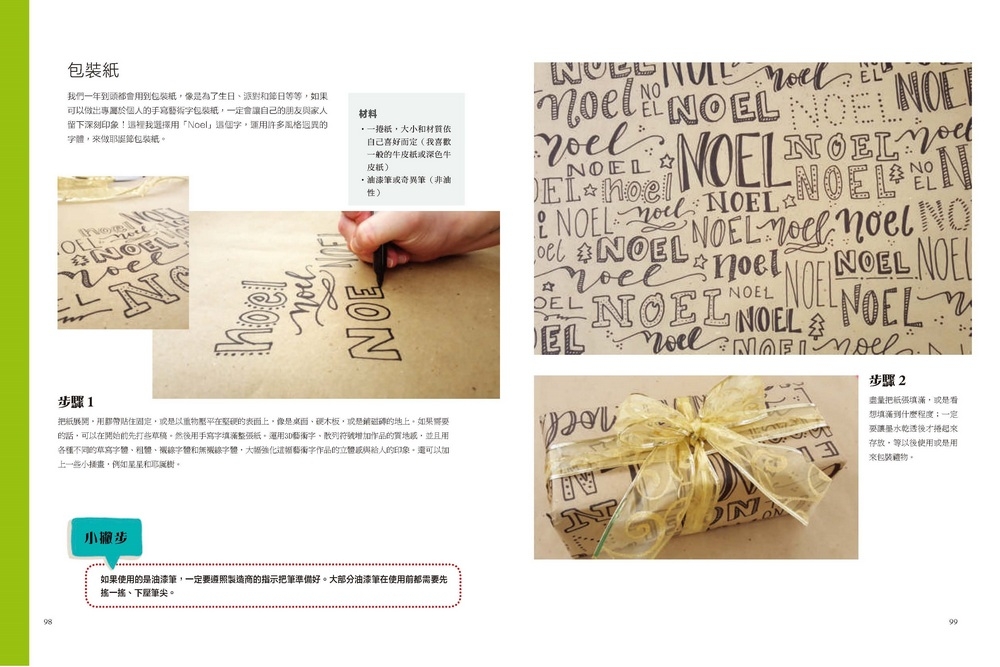 包裝紙
我們一年到頭都會用到包裝紙，像是為了生日、派對和節日等等，如果
可以做出專屬於個人的手寫藝術字包裝紙，一定會讓自己的朋友與家人
留下深刻印象！這裡我選擇用「Noel」這個字，運用許多風格迥異的
字體，來做耶誕節包裝紙。
材料
・一捲紙，大小和材質依
自己喜好而定（我喜歡
一般的牛皮紙或深色牛
皮紙）
・油漆筆或奇異筆（非油
性）
noel
noel
NOEL
NOE
步驟 1
把紙展開，用膠帶貼住固定，或是以重物壓平在堅硬的表面上，像是桌面、硬木板，或是鋪磁磚的地上。如果需要
的話，可以在開始前先打些草稿。然後用手寫字填滿整張紙。運用3D藝術字、散列符號增加作品的質地感，並且用
各種不同的草寫字體、粗體、襯線字體和無襯線字體，大幅強化這幅藝術字作品的立體感與給人的印象。還可以加
上一些小插畫，例如星星和耶誕樹。
小撇步
如果使用的是油漆筆，一定要遵照製造商的指示把筆準備好。大部分油漆筆在使用前都需要先
搖一搖、下壓筆尖。
98
NOEL noel NOEL
noel NOEL NOEL NOEL
noel NOEL NOEL NOEL
NOEL noel NOEL NOEL NOEL
NOEL noel NOEL noel noel NO
noel NOEL noel NOEL NOEL NOEL
noel NOEL NOEL
NOEL NOEL NOEL
noel NOEL noel
步驟 2
盡量把紙張填滿，或是看
想填滿到什麼程度；一定
要讓墨水乾透後才捲起來
存放，等以後使用或是用
來包裝禮物。
99